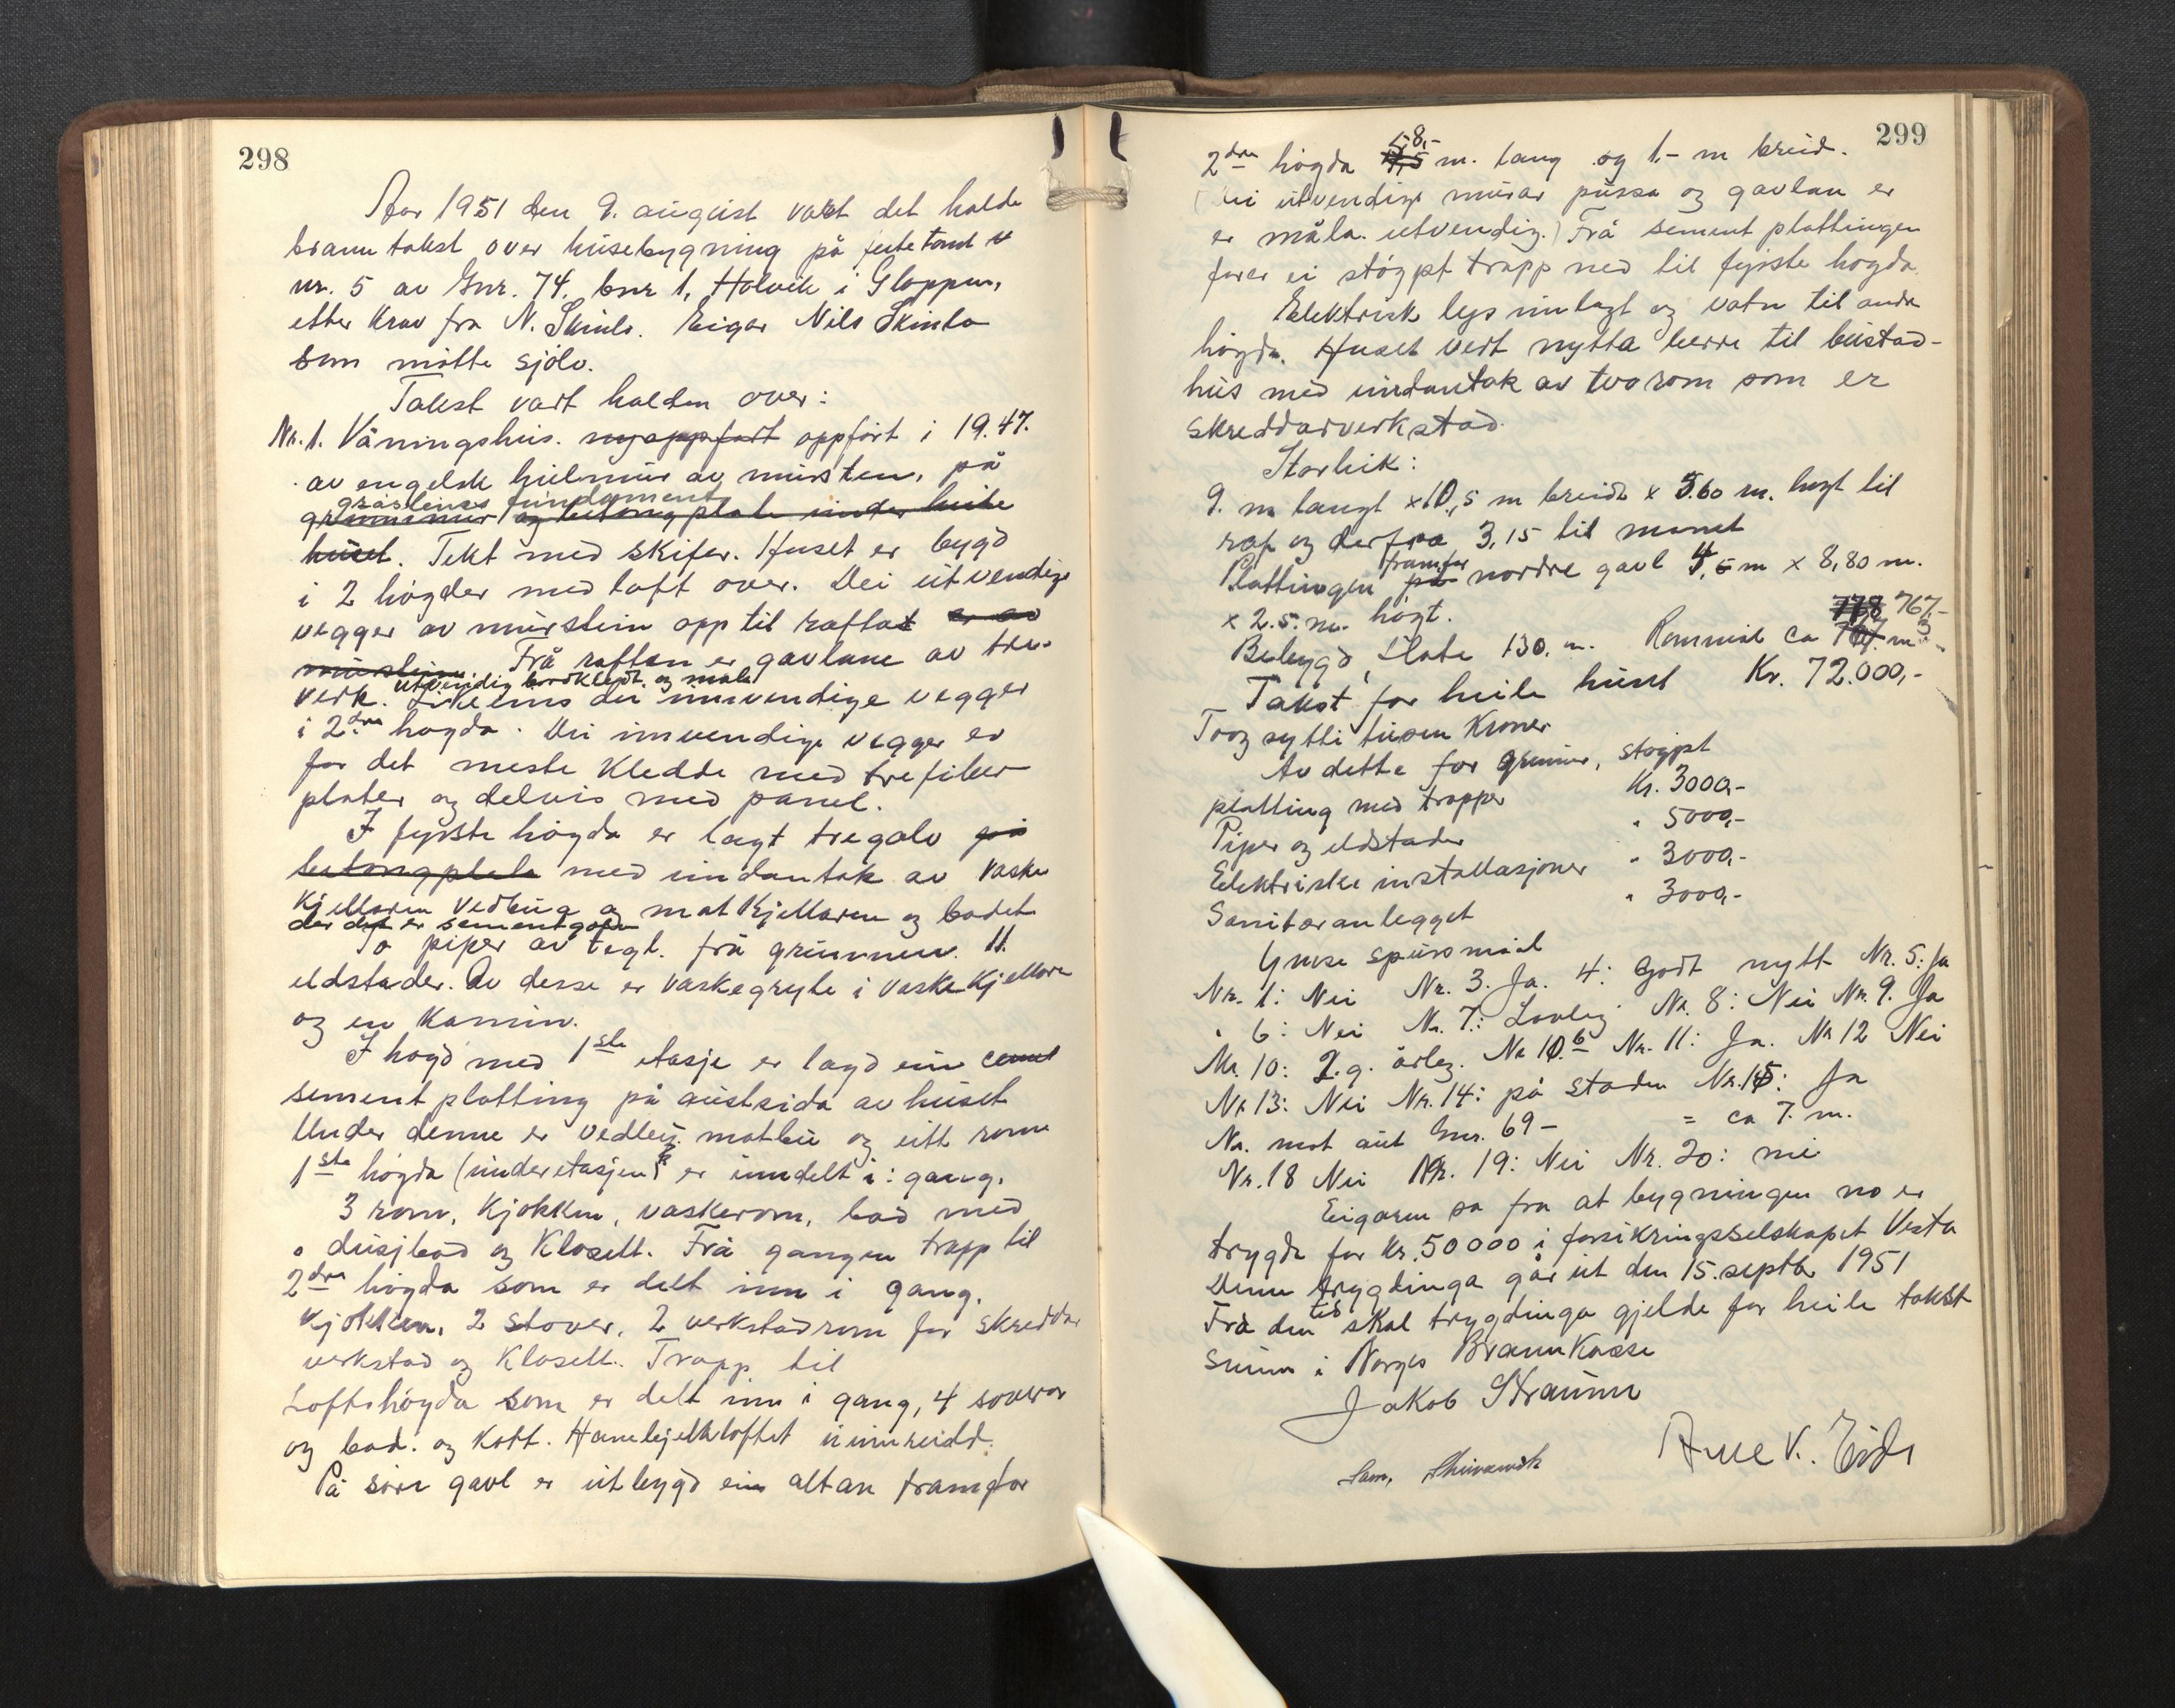 298
Aar 1951 den 9. august vart det halde
branntakst over husebygning på festetomt
nr. 5 av Gnr. 74, bnr 1, Holvik i Gloppen,
etter krav fra N. Skinlo. Eigar Nils Skinlo
som møtte sjølv.
Takst vart halden over:
Nr. 1. Våningshus. nyoppført oppført i 19.47.
av engelsk hulmur av mursten, på
gråsteins fundament
grunnmur og betong plate under heile
huset. Tekt med skifer. Huset er bygd
i 2 høgder med loft over. Dei utvendige
vegger av murstein opp til raftet er av
murstein. Frå raften er gavlane av tre-
utvendig bordkledt og måla
verk. Likeeins dei innvendige vegger
i 2dre høgda. Dei innvendige vegger er
for det meste kledde med trefiber
plater og delvis med panel.
I fyrste høgda er lagt tregolv på
betongplate med undantak av vaske
kjellaren vedbua og mat kjellaren og badet
der det er sementgolv
To piper av tegl. frå grunnen. 11.
eldstader. Av desse er vaskegryte i vaskekjellare
og en kamin.
I høgd med 1ste etasje er lagd ein cemet
sement platting på austsida av huset
Under denne er vedbu, matbu og eitt rom
1ste høgda (underetasjen) er inndelt i: gang,
3 rom, kjøkken, vaskerom, bad med
dusjbad og klosett. Frå gangen trapp til
2dre høgda som er delt inn i gang,
kjøkken, 2 stover, 2 verkstadrom for skreddar
verkstad og klosett. Trapp til
Loftshøgda som er delt inn i gang, 4 soverom
og bad. og kott. Hanebjelkloftet uinnreidd.
På søre gavl er utbygd ein altan framfor
299
5,8,-
2dre høgda 4,5 m. lang og 1,- m breid.
(Dei utvendige murar pussa og gavlan er
er måla utvendig.) Frå sement plattingen
fører ei støypt trapp ned til fyrste høgda.
Elektrisk lys innlagt og vatn til andre
høgda. Huset vert nytta berre til bustad-
hus med undantak av two rom som er
skreddarverkstad.
Storleik:
9. m langt x 10,5 m breidt x 5.60 m. høgt til
raft og derfra 3,15 til mønet
framfor
Plattingen på nordre gavl 4,5 m x 8,80 m.
x 2.5. m. høgt.
778 767,-
Bebygd flate 130. m. Rommål ca 767 m3.
Takst for heile huset Kr. 72.000,-
Toog sytti tusen Kroner
Av dette for grunnmur, støypt
platting med trapper Kr. 3000,-
Piper og eldstader " 5000,-
Elektriske installasjoner " 3000,-
Sanitæranlegget " 3000,-
Ymse spursmål
Nr. 1: Nei Nr. 3. Ja. 4: Godt nytt Nr. 5: Ja
" 6: Nei Nr. 7.: Lovleg Nr. 8: Nei Nr. 9. Ja
Nr. 10: 2. g. årleg. Nr 10.b Nr. 11: Ja. Nr 12 Nei
Nr 13: Nei Nr. 14: på staden Nr. 15: Ja
Nr. mot aust Gnr. 69 - = ca 7. m.
Nr. 18 Nei Nr. 19: Nei Nr. 20: nei
Eigaren sa fra at bygningen no er
trygda for Kr. 50000 i forsikringsselskapet Vesta
Denne trygdinga går ut den 15. septbr 1951
Frå den tid skal trygdinga gjelde for heile takst
summ i Norges Brannkasse
Jakob Straume
Arne V. Eide
Sam.